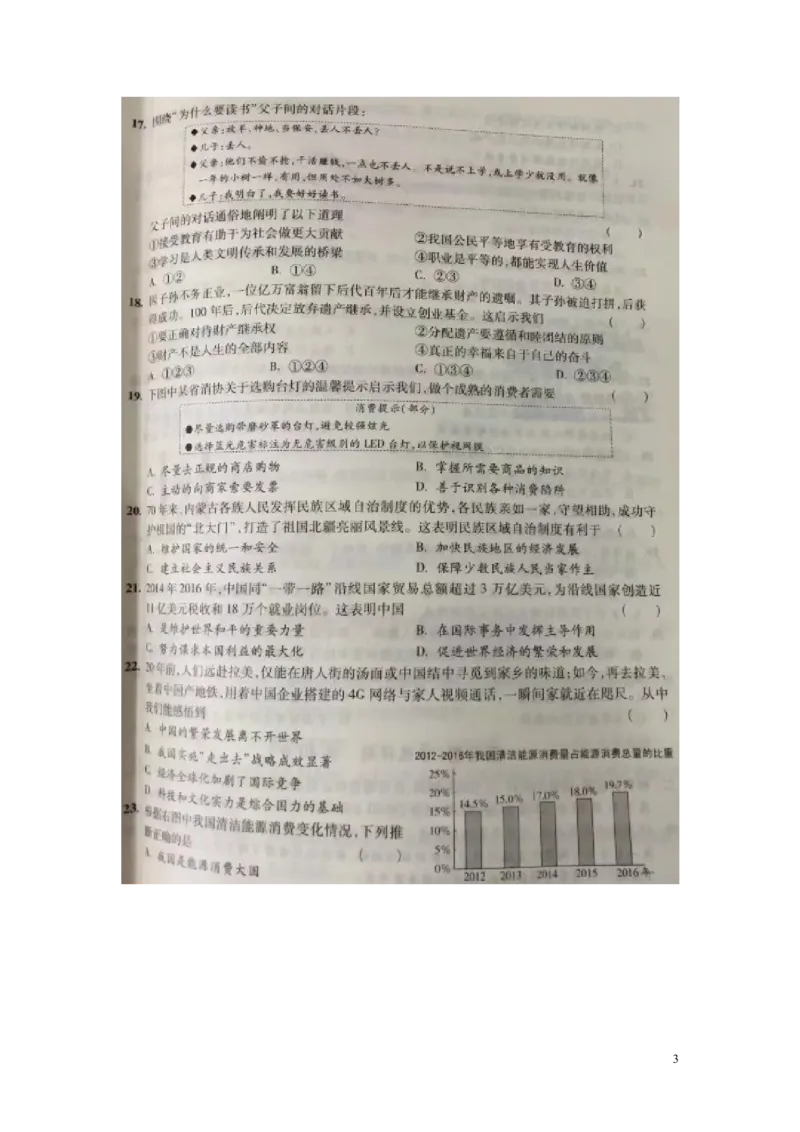 17. 围绕“为什么要读书”父子间的对话片段：
◆父亲：放羊、种地、当保安，丢人不丢人？
◆儿子：丢人。
◆父亲：他们不偷不抢，干活赚钱，一点也不丢人。不是说不上学，或上学少就没用。就像
一年的小树一样，有用，但用处不如大树多。
◆儿子：我明白了，我要好好读书。
父子间的对话通俗地阐明了以下道理 （ ）
①接受教育有助于为社会做更大贡献 ②我国公民平等地享有受教育的权利
③学习是人类文明传承和发展的桥梁 ④职业是平等的，都能实现人生价值
A. ①② B. ①④ C. ②③ D. ③④
18. 因子孙不务正业，一位亿万富翁留下后代百年后才能继承财产的遗嘱。其子孙被迫打拼，后获
得成功。100年后，后代决定放弃遗产继承，并设立创业基金。这启示我们 （ ）
①要正确对待财产继承权 ②分配遗产要遵循和睦团结的原则
③财产不是人生的全部内容 ④真正的幸福来自于自己的奋斗
A. ①②③ B. ①②④ C. ①③④ D. ②③④
19. 下图中某省消协关于选购台灯的温馨提示启示我们，做个成熟的消费者需要 （ ）
消费提示（部分）
●尽量选购带磨砂罩的台灯，避免较强炫光
●选择蓝光危害标注为无危害级别的LED台灯，以保护视网膜
A. 尽量去正规的商店购物 B. 掌握所需要商品的知识
C. 主动的向商家索要发票 D. 善于识别各种消费陷阱
20. 70年来，内蒙古各族人民发挥民族区域自治制度的优势，各民族亲如一家，守望相助，成功守
护祖国的“北大门”，打造了祖国北疆亮丽风景线。这表明民族区域自治制度有利于 （ ）
A. 维护国家的统一和安全 B. 加快民族地区的经济发展
C. 建立社会主义民族关系 D. 保障少数民族人民当家作主
21. 2014年2016年，中国同“一带一路”沿线国家贸易总额超过3万亿美元，为沿线国家创造近
11亿美元税收和18万个就业岗位。这表明中国 （ ）
A. 是维护世界和平的重要力量 B. 在国际事务中发挥主导作用
C. 努力谋求本国利益的最大化 D. 促进世界经济的繁荣和发展
22. 20年前，人们远赴拉美，仅能在唐人街的汤面或中国结中寻觅到家乡的味道；如今，再去拉美，
坐着中国产地铁，用着中国企业搭建的4G网络与家人视频通话，一瞬间家就近在咫尺。从中
我们能感悟到 （ ）
A. 中国的繁荣发展离不开世界
B. 我国实施“走出去”战略成效显著
C. 经济全球化加剧了国际竞争
D. 科技和文化实力是综合国力的基础
23. 根据右图中我国清洁能源消费变化情况，下列推
断正确的是 （ ）
A. 我国是能源消费大国
2012-2016年我国清洁能源消费量占能源消费总量的比重
25%
20%
15%
10%
5%
0%
14.5% 15.0% 17.0% 18.0% 19.7%
2012 2013 2014 2015 2016年
3